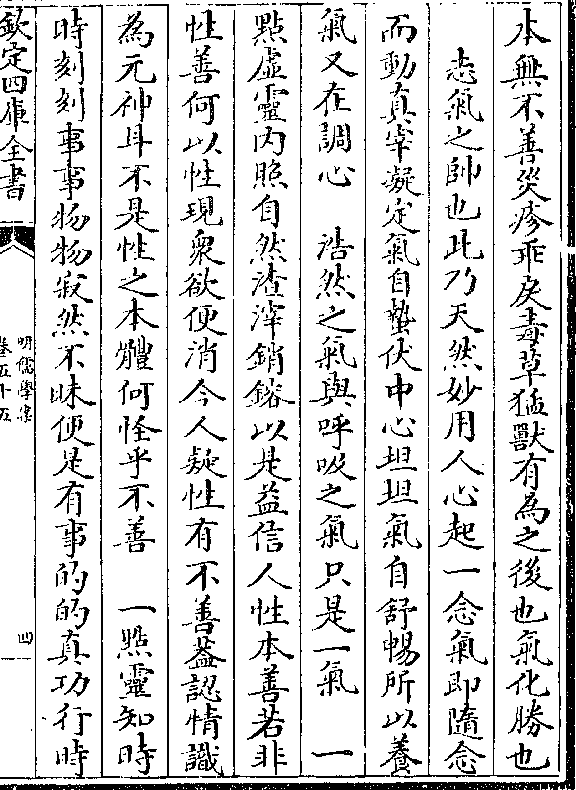 本無不善災疹乖戾毒草猛獸有為之後也氣化勝也
志氣之帥也此乃天然妙用人心起一念氣即隨念
而動真宰凝定氣自蟄伏中心坦坦氣自舒暢所以養
氣又在調心　浩然之氣與呼吸之氣只是一氣　一
點虛靈內照自然渣滓銷鎔以是益信人性本善若非
性善何以性現衆欲便消今人疑性有不善葢認情識
為元神耳不是性之本體何怪乎不善　一㸃靈知時
時刻刻事事物物寂然不昧便是有事的的真功行時
欽定四庫全書
明儒學案
卷五十五
四